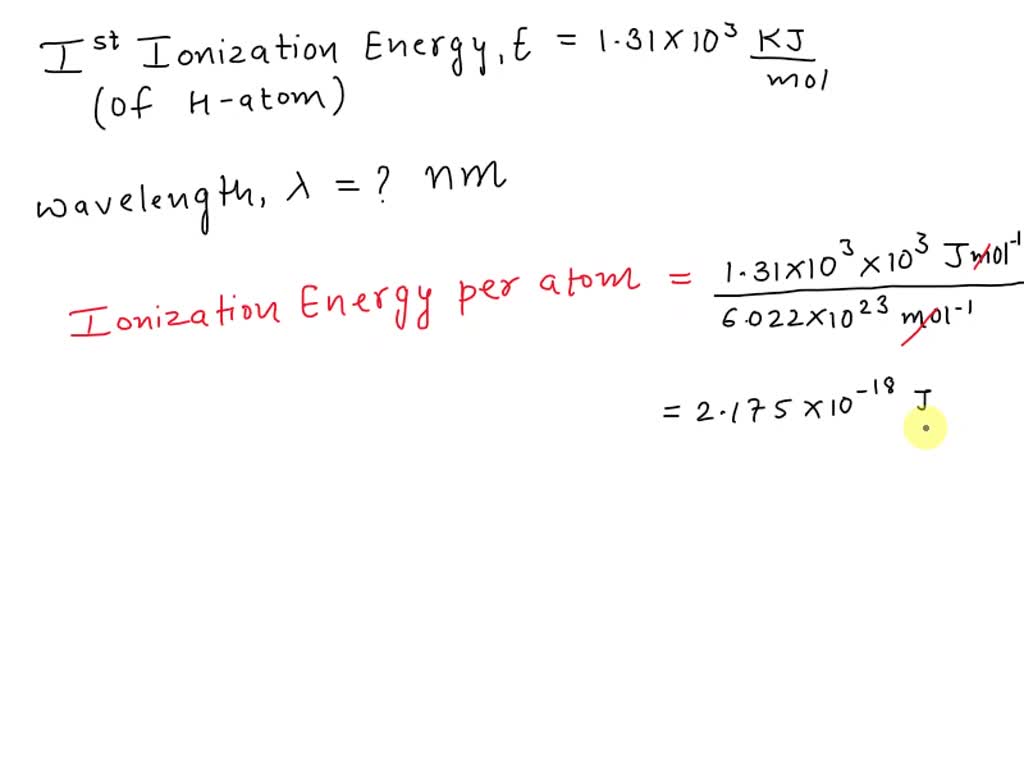 Ist Ionization Energy, E = 1.31×10³ KJ/mol
(of H-atom)
wavelength, λ = ? nm
Ionization Energy per atom = 1.31×10³×10³ Jmol⁻¹ / 6.022×10²³ mol⁻¹
= 2.175×10⁻¹⁸ J